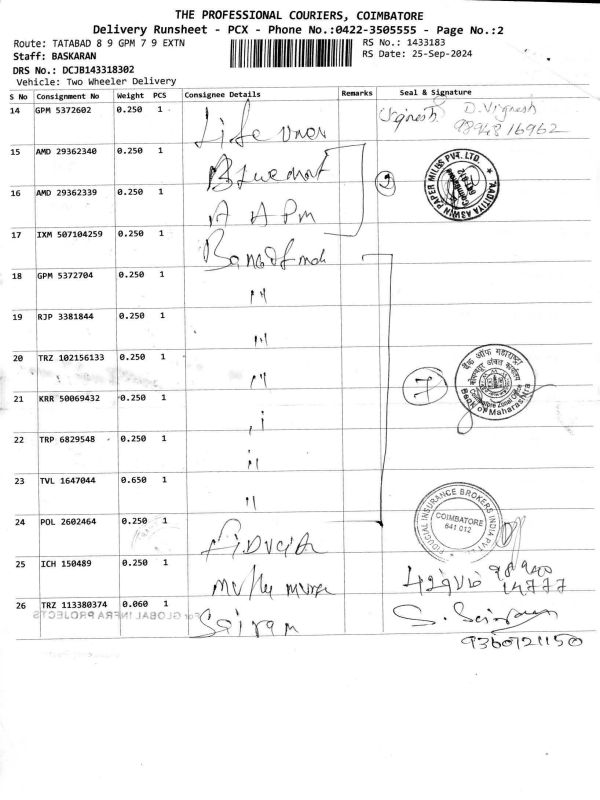 THE PROFESSIONAL COURIERS, COIMBATORE
Delivery Runsheet - PCX - Phone No.:0422-3505555 - Page No.:2
Route: TATABAD 8 9 GPM 7 9 EXTN
RS No.: 1433183
Staff: BASKARAN
RS Date: 25-Sep-2024
DRS No.: DCJB143318302
Vehicle: Two Wheeler Delivery
S No Consignment No Weight PCS Consignee Details Remarks Seal & Signature
14 GPM 5372602 0.250 1 Life Vignesh D. Vignesh
9894816962
15 AMD 29362340 0.250 1
16 AMD 29362339 0.250 1 A A Pm 2 AADITYA ASWIN PAPER MILLS PVT. LTD. Coimbatore 641 012
17 IXM 507104259 0.250 1
18 GPM 5372704 0.250 1 "
19 RJP 3381844 0.250 1 "
20 TRZ 102156133 0.250 1 " 7 बैंक ऑफ महाराष्ट्र
Coimbatore Zonal Office
Bank of Maharashtra
21 KRR 50069432 0.250 1 "
22 TRP 6829548 0.250 1 "
23 TVL 1647044 0.650 1 "
24 POL 2602464 0.250 1 FIDUCIAL INSURANCE BROKERS INDIA PVT.
COIMBATORE
641 012
25 ICH 150489 0.250 1
14777
26 TRZ 113380374 0.060 1 Sairam S. Sairam
For GLOBAL INFRA PROJECTS
9360721150